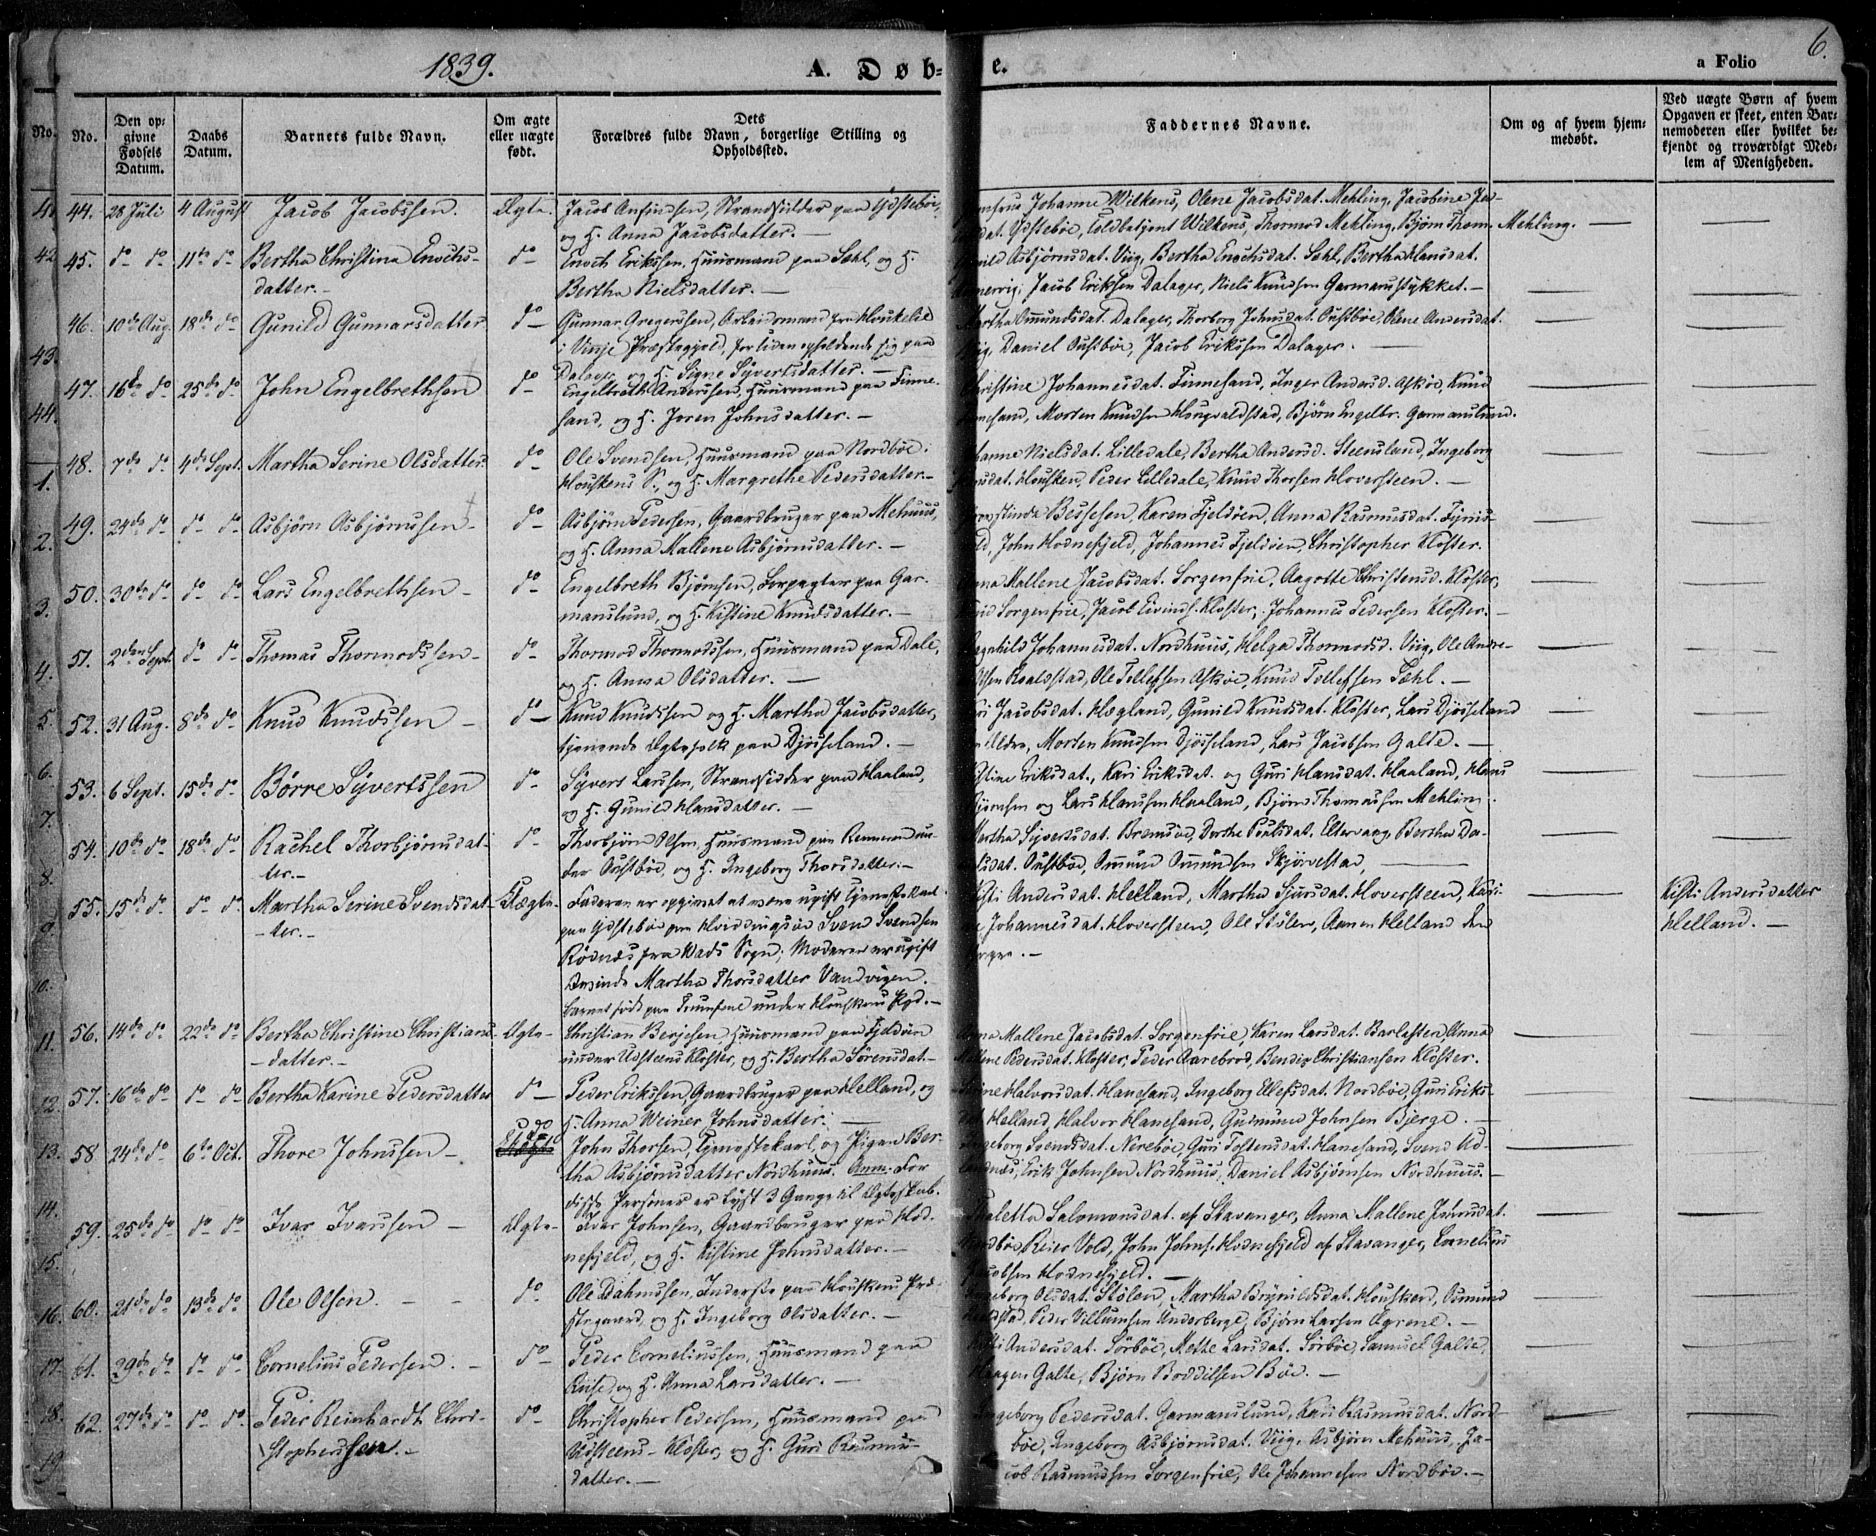 1839.
A. Døb=
e.
a Folio
6.
No.
No.
Den op=
givne
Fødsels
Datum.
Daabs
Datum.
Barnets fulde Navn.
Om ægte
eller uægte
født.
Dets
Forældres fulde Navn, borgerlige Stilling og
Opholdssted.
Faddernes Navne.
Om og af hvem hjem=
medøbt.
Ved uægte Børn af hvem
Opgaven er skeet, enten Bar=
nemoderen eller hvilket be=
kjendt og troværdigt Med=
lem af Menigheden.
44. 28 Juli 4 August Jacob Jacobssen. Ægte. Jacob Anfindsen, Strandsidder paa Ydstebøe,
og H. Anna Jacobsdatter. —
Johanne Wilkens, Olene Jacobsdat. Mehling, Jacobine Ja-
dat. Ydstebøe, Toldbetjent Wilkens, Thormod Mehling, Bjørn Thom. Mehling.
45. do do 11te do Bertha Christina Enochs- do Enoch Erikssen, Huusmand paa Sæhl, og H.
datter. — Bertha Nielsdatter. —
Asbjørnsdat. Viig, Bertha Enochsdat. Sæhl, Bertha Hansdat.
Jacob Eriksen Dalager, Niels Knudsen Garmanstykket. —
46. 10de Aug. 18de do Gunild Gunnarsdatter do Gunnar Gregerssen, Arbeidsmand fra Houkelie
i Vinje Præstegjeld, for tiden opholdende sig paa
Dalager, og H. Signe Syvertsdatter. —
Martha Omundsdat. Dalager, Thorborg Johnsdat. Oustbøe, Olene Andersdat.
Viig, Daniel Oustbøe, Jacob Erikssen Dalager. —
47. 16de do 25de do John Engelbrethsen do Engelbreth Anderssen, Huusmand paa Finne-
sand, og H. Joren Johnsdatter. —
Christine Johannesdat. Finnesand, Inger Andersd. Askøe, Knud
Finnesand, Morten Knudsen Hougvaldstad, Bjørn Engelbr. Garmanslund.
48. 7de do 4de Sept. Martha Serine Olsdatter do Ole Svendsen, Huusmand paa Nordbøe
Houskens S., og H. Margrethe Pedersdatter. —
Nielsdat. Lilledale, Bertha Andersd. Steensland, Ingeborg
Housken, Peder Lilledale, Knud Thorsen Hoversteen. —
49. 24de do do do Asbjørn Asbjørnssen do Asbjørn Pedersen, Gaardbruger paa Mehuus,
og H. Anna Mallene Asbjørnsdatter. —
Bessesen, Karen Fjeldøen, Anna Rasmusdat.
John Hodnefjeld, Johannes Fjeldøen, Christopher Kloster.
50. 30te do do do Lars Engelbrethsen do Engelbreth Bjørnsen, Forpagter paa Gar-
manslund, og H. Kistine Knudsdatter. —
Anna Mallene Jacobsdat. Sorgenfrie, Aagotte Christensd. Kloster,
Sorgenfrie, Jacob Eivinds. Kloster, Johannes Pedersen Kloster. —
51. 2den Sept. do do Thomas Thormodssen do Thormod Thormodssen, Huusmand paa Dale,
og H. Anna Olsdatter. —
Johannesdat. Nordhuus, Helga Thormodsd. Viig, Ole Andre-
Ole Tollefsen Askøe, Knud Tollefsen Sæhl. —
52. 31 Aug. 8de do Knud Knudssen do Knud Knudssen og H. Martha Jacobsdatter,
tjenende Ægtefolk paa Djøiseland. —
Jacobsdat. Hægland, Gunild Knudsdat. Kloster, Lars Djøiseland
Morten Knudsen Djøiseland, Lars Jacobsen Galte. —
53. 6 Sept. 15de do Børre Syvertssen do Syvert Larssen, Strandsidder paa Haaland,
og H. Gunild Hansdatter. —
Eriksdat., Kari Eriksdat. og Guri Hansdat. Haaland, Hans
Bjørnsen og Lars Hansen Haaland, Bjørn Thomassen Mehling.
54. 10de do 18de do Rachel Thorbjørnsdat- do Thorbjørn Olsen, Huusmand paa Rennaren un-
ter. — der Oustbøe, og H. Ingeborg Thorsdatter. —
Martha Syvertsdat. Bremsøe, Dorthe Poulsdat. Eltervaag, Bertha Da-
Oustbøe, Omund Omundsen Skjørvestad,
55. 15de do do do Martha Serine Svendsdat- Uægte Faderen er opgivet at være ugift Tjenestekarl
ter. — paa Ydstebøe paa Hvidingsøe Sven Svendsen
Rødnæs fra Wads Sogn; Moderen er ugift
Qvinde Martha Thorsdatter Vandvigen.
Barnet født paa under Houskens Pgd. —
Kisti Andersdat. Helland, Martha Sjursdat. Hoversteen, Kari
Johannesdat. Hoversteen, Ole Stølen, Aamen Helland den
yngre. —
Kisti Andersdatter
Helland. —
56. 14de do 22de do Bertha Christine Christians- Ægte Christian Berjesen Huusmand paa Fjeldøen
datter. — under Udsteens Kloster, og H. Bertha Sørensdat. —
Anna Mallene Jacobsdat. Sorgenfrie, Karen Larsdat. Barlesten, Anna
Mallene Pedersdat. Kloster, Peder Aarebrod, Bendix Christiansen Kloster.
57. 16de do do do Bertha Karine Pedersdatter do Peder Erikssen, Gaardbruger paa Helland, og
H. Anna Weiner Johnsdatter. —
Halvorsdat. Hanesand, Ingeborg Ellefsdat. Nordbøe, Guri Eriks-
Helland, Halvor Hanesand, Gudmund Johnsen Bjerge. —
58 24de do 6te Oct. Thore Johnssen do John Thorsen, Tjenestekarl, og Pigen Ber-
tha Asbjørnsdatter Nordhuus. Anm. For
disse Personer er lyst 3 Gange til Ægteskab.
Ingeborg Svendsdat. Nerebøe, Guri Tostensdat. Hanesand, Svend Ud-
Erik Johnsen Nordhuus, Daniel Asbjørnsen Nordhuus. —
59. 25de do do do Ivar Ivarssen Ægte Ivar Johnsen, Gaardbruger paa Hod-
nefjeld, og H. Kistine Johnsdatter. —
Salomonsdat. af Stavanger, Anna Mallene
Nordbøe, Reier Vold, John Johns. Hodnefjeld af Stavanger, Cornelius
Jacobsen Hodnefjeld. —
60. 21de do 13de do Ole Olsen. do Ole Dahmusen, Inderste paa Houskens Præ-
stegaard, og H. Ingeborg Olsdatter. —
Ingeborg Olsdat. Stølen, Martha Brynildsdat. Housken, Osmund
Peder Villumsen Underberge, Bjørn Larsen Aarene. —
61. 29de do do do Cornelius Pedersen. do Peder Corneliussen, Huusmand paa
Reise, og H. Anna Larsdatter. —
Andersdat. Sørbøe, Mette Larsdat. Sørbøe, Samuel Galte,
Haagen Galte, Bjørn Boddelsen Bøe. —
62. 27de do do do Peder Reinhardt Chri- do Christopher Pedersen, Huusmand paa
stophersen. — Udsteens-Kloster, og H. Guri Rasmus-
datter. —
Ingeborg Pedersdat. Garmanslund, Kari Rasmusdat. Nord-
bøe, Ingeborg Asbjørnsdat. Viig, Asbjørn Mehuus, Ja-
cob Rasmussen Sorgenfrie, Ole Johannesen Nordbøe. —